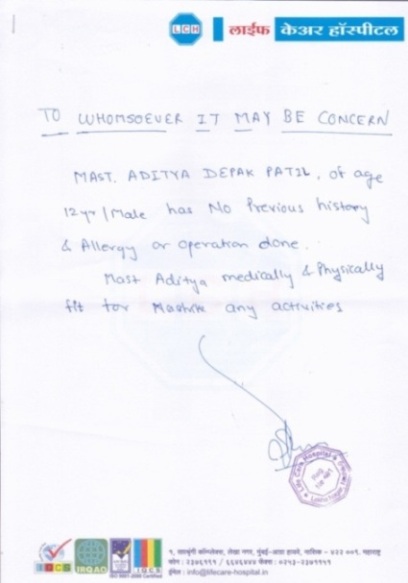 LCH
लाईफ केअर हॉस्पीटल
TO WHOMSOEVER IT MAY BE CONCERN
MAST. ADITYA DEPAK PATIL, of age
12yr/Male has No Previous history
& Allergy or operation done.
Mast Aditya medically & Physically
fit for any activities
Life Care Hospital &
IQCS
IRQAO
ISO 9001-2008 Certified
फोन : २३७६९९९ / ६६४६४४४
ईमेल : info@lifecare-hospital.in